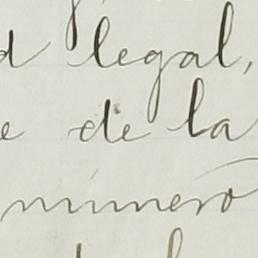 d legal,
e de la
número